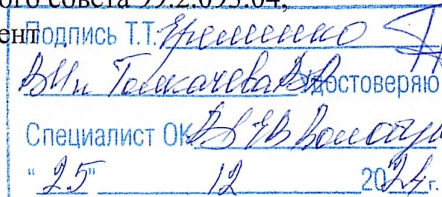 ого совета 99.2.095.04,
ент
Подпись Т.Т. Еременко
Толкачева удостоверяю
Специалист ОК
"25" 12 2024 г.